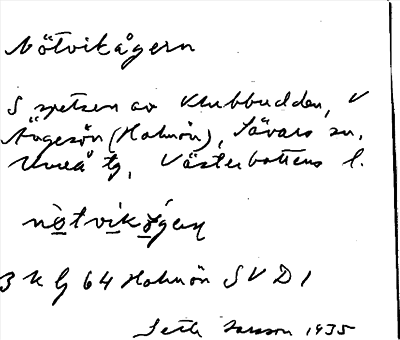 Nötvikågern
S spetsen av Klubbudden, V
Ängesön (Holmön), Sävars sn,
Umeå tg, Västerbottens l.
nötvikǫ́gen
3 K g 64 Holmön SV D 1
Seth Larsson 1935